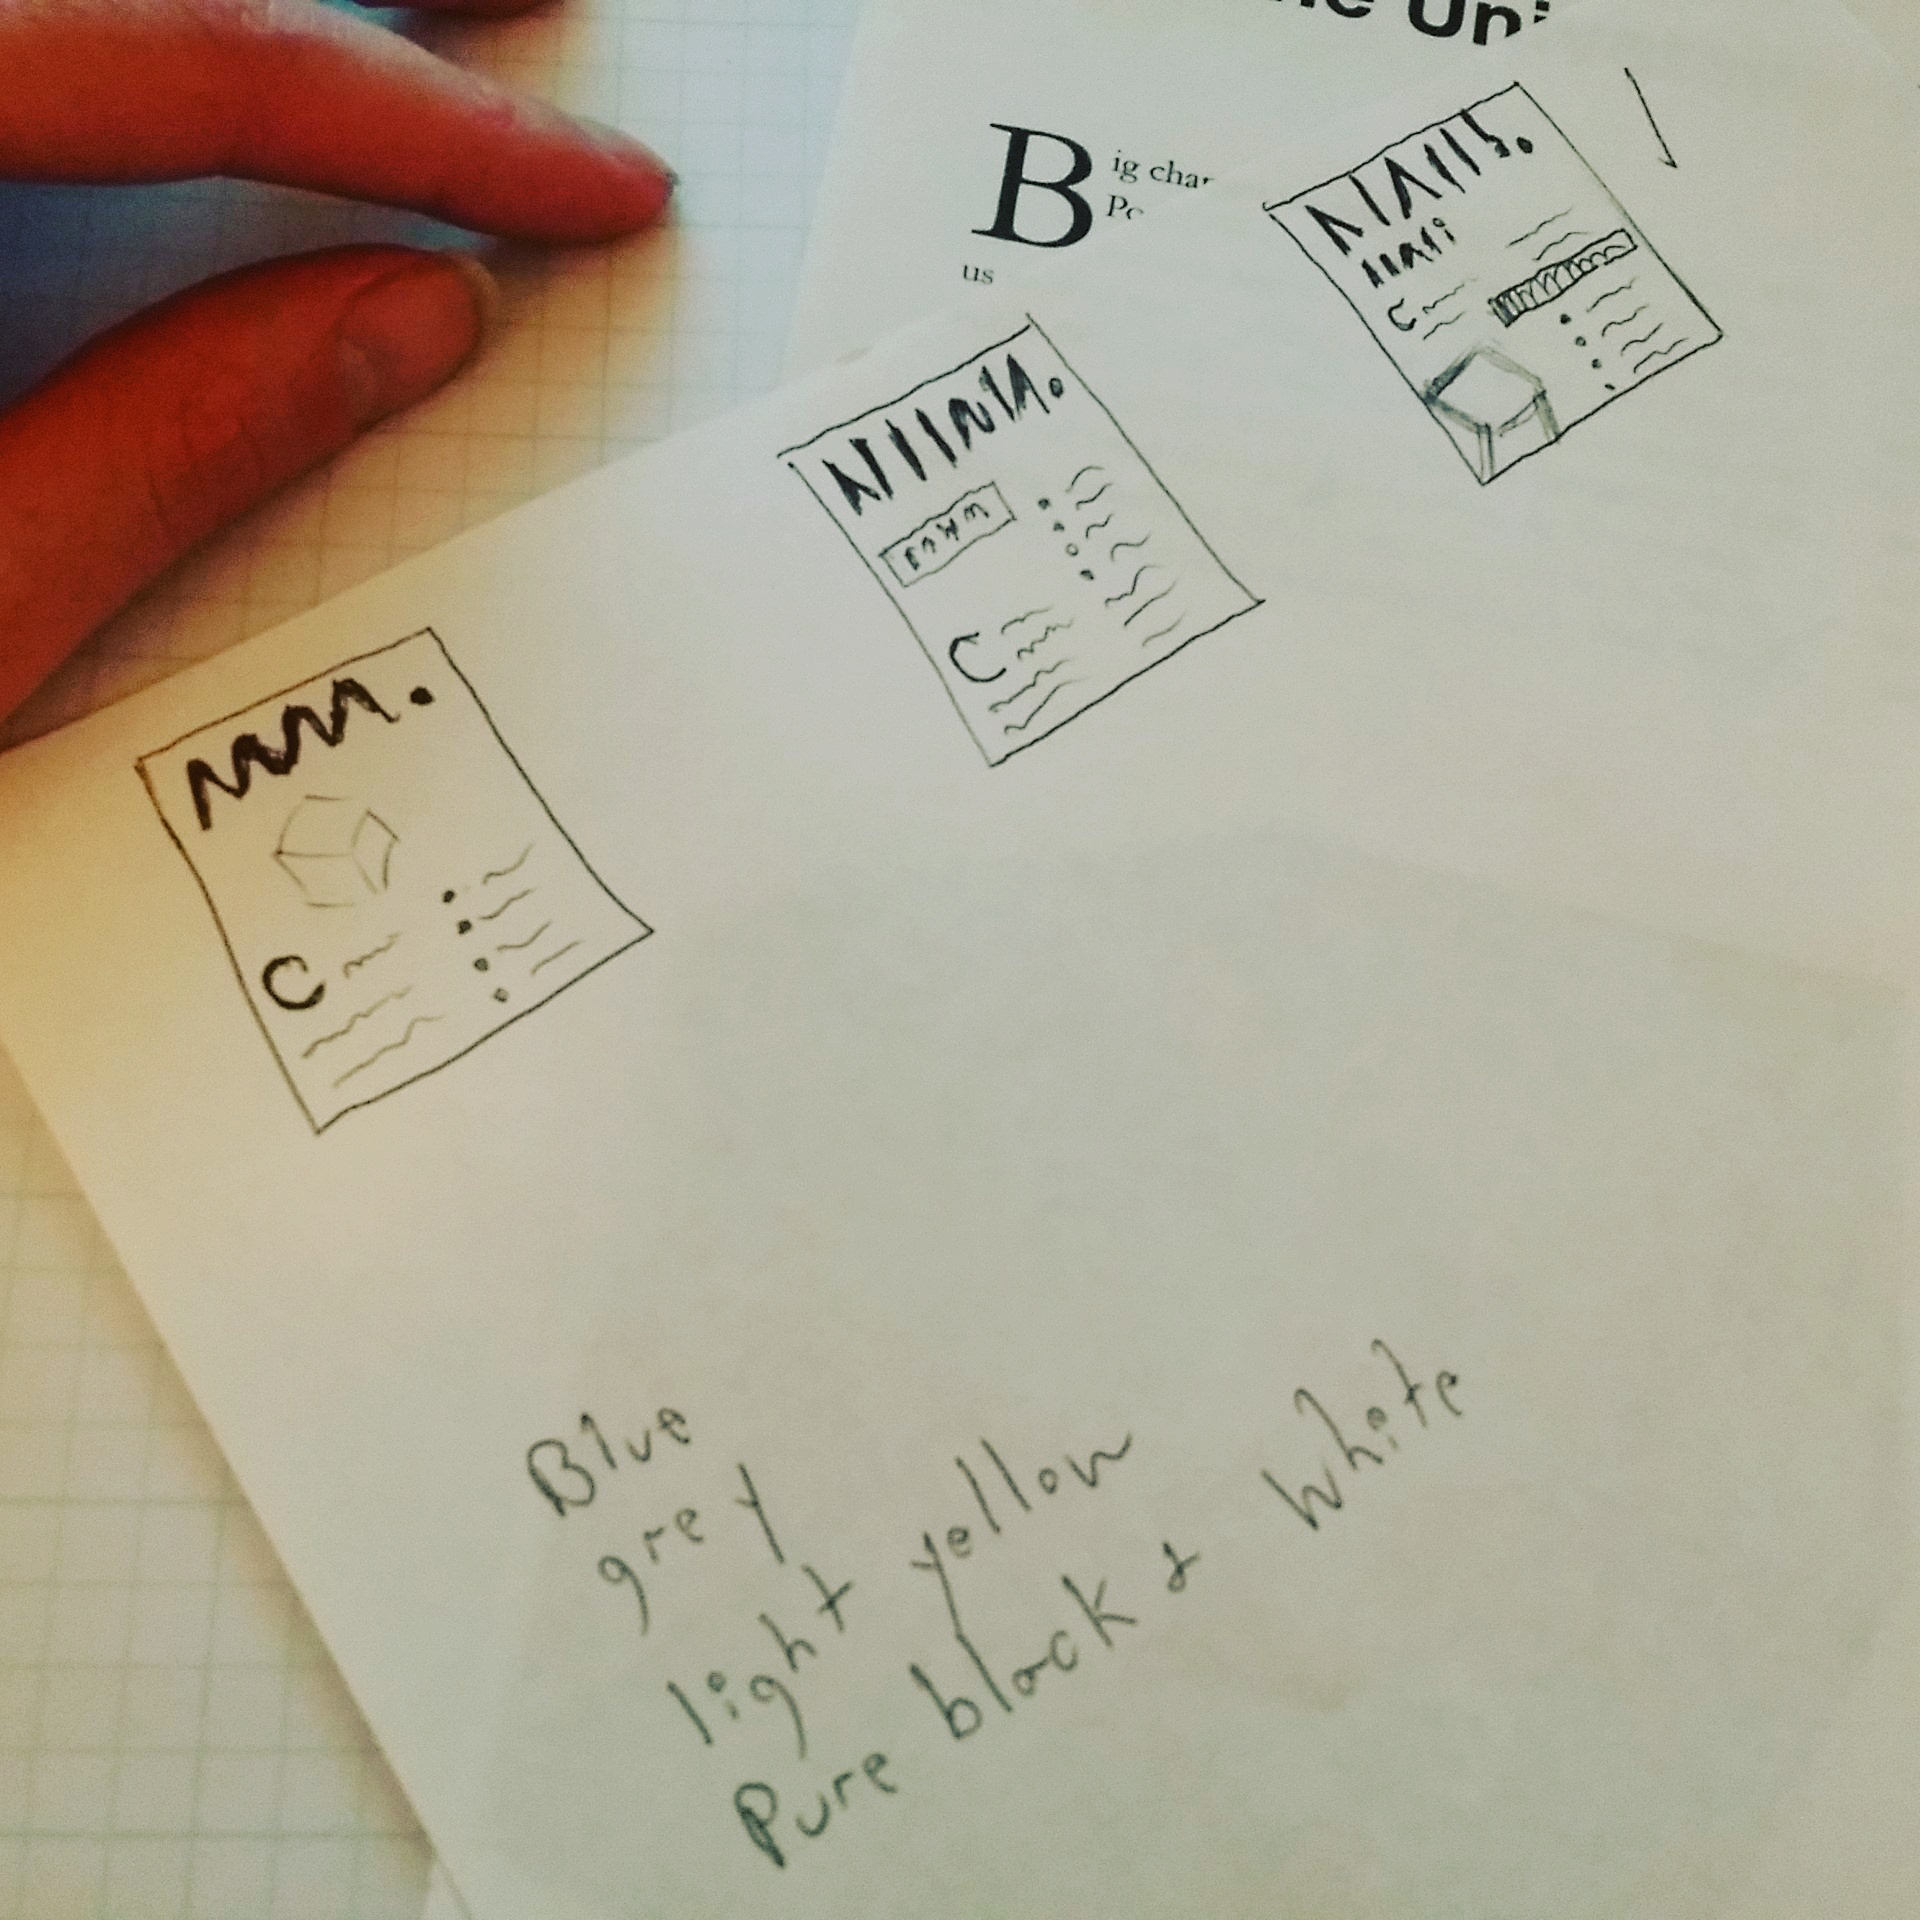 Un
B
ig char
us
C
C
C
Blue
grey
light yellow
Pure black & white